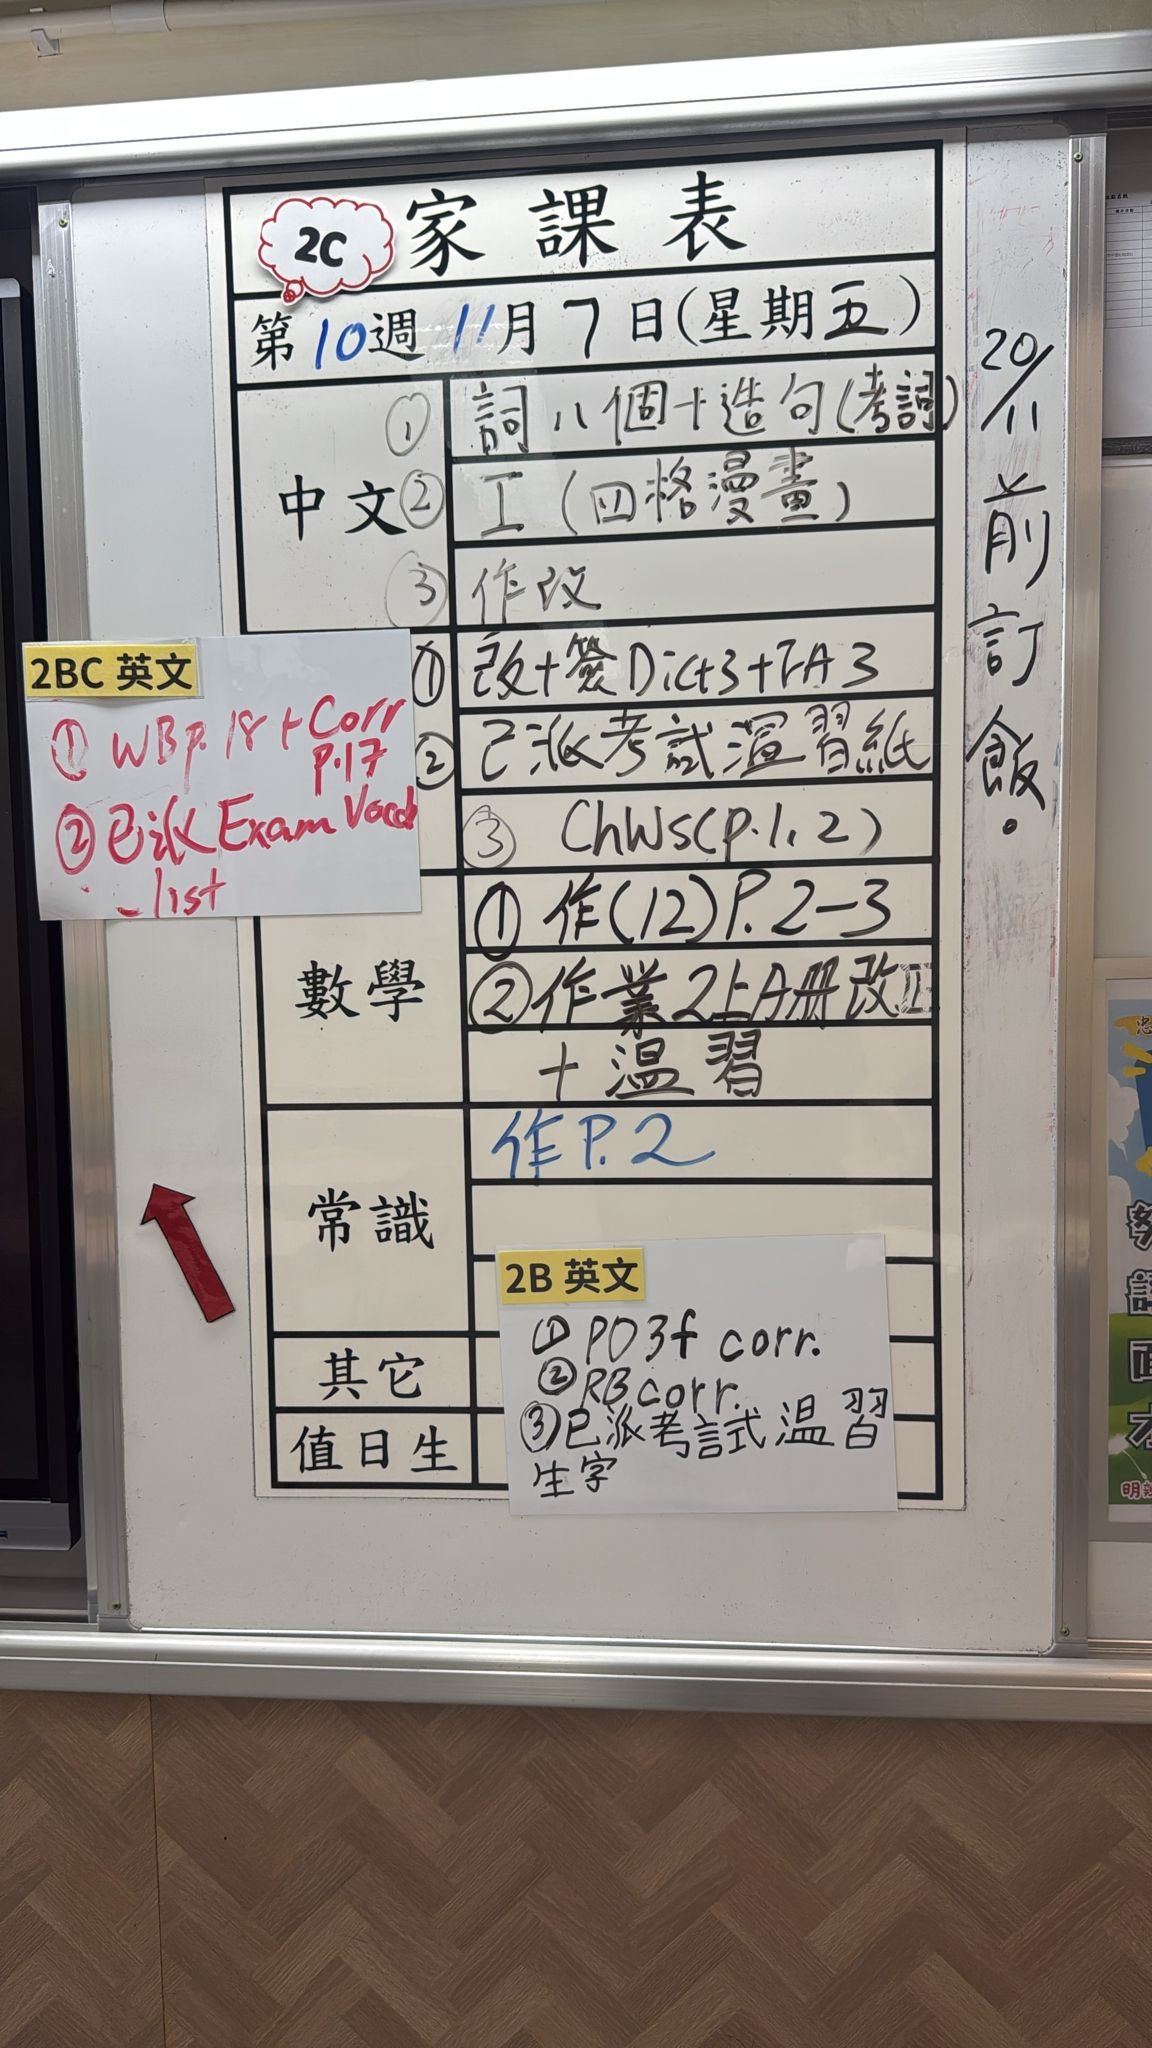 2C 家課表
第10週 11月7日(星期五)
中文
① 詞八個+造句(考詞)
② 工(四格漫畫)
③ 作改
① 改+簽Dict3+FA3
② 已派考試溫習紙
③ ChWs(p.1,2)
數學
① 作(12)P.2-3
② 作業2上A冊改正
+溫習
常識
作P.2
其它
值日生
2BC 英文
① WB p.18+Corr
p.17
② 已派Exam Vocab
list
2B 英文
① P03f corr.
② RB corr.
③ 已派考試溫習
生字
20/11前訂飯。